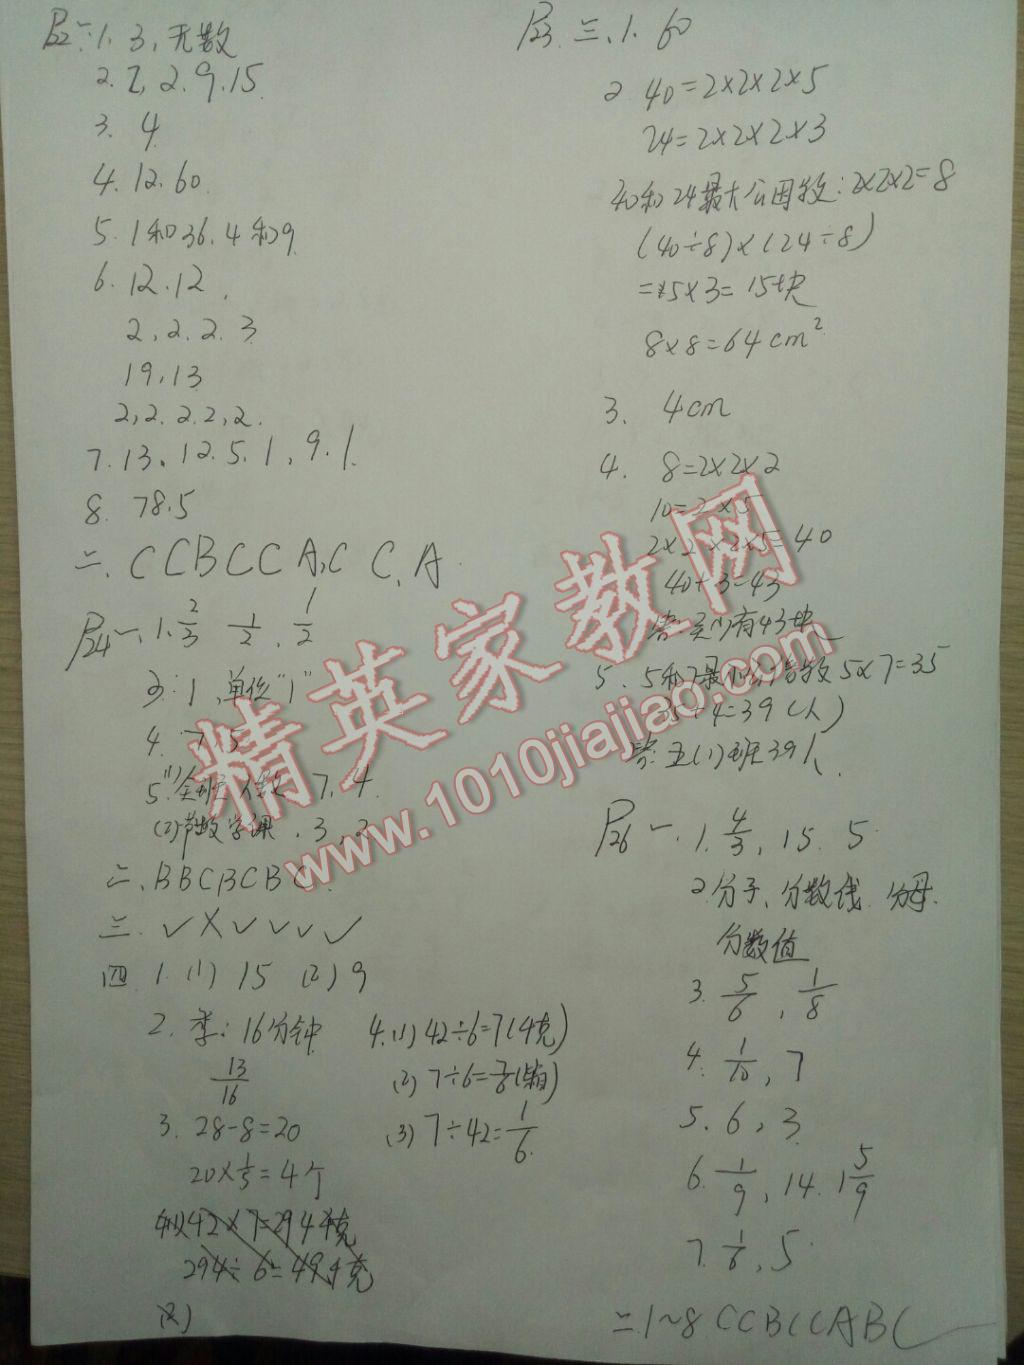 P22 一. 1. 3, 无数
2. 2, 2. 9. 15
3. 4
4. 12. 60
5. 1和36. 4和9
6. 12. 12
2, 2. 2. 3
19, 13
2, 2. 2. 2, 2.
7. 13、12. 5. 1, 9. 1.
8. 78.5
二、CCBCCA,C C, A
P24 一、1. 2/3 1/2, 1/2
3: 1, 单位"1"
4. 7
5 (1) 全班人数 7, 4
(2) 节数学课, 3, 2
二、BBCBCBC
三. ✓X✓✓✓✓
四 1. (1) 15 (2) 9
2. 李: 16分钟
13/16
3. 28-8=20
20×1/5=4个
42×7=294千克
294÷6=49千克
4. (1) 42÷6=7(千克)
(2) 7÷6=7/6(箱)
(3) 7÷42=1/6
P23. 三、1. 60
2. 40=2×2×2×5
24=2×2×2×3
40和24最大公因数: 2×2×2=8
(40÷8)×(24÷8)
=5×3=15块
8×8=64cm²
3. 4cm
4. 8=2×2×2
10=2×5
2×2×2×5=40
40+3=43
答: 至少有43块
5. 5和7最小公倍数5×7=35
35+4=39(人)
答: 五(1)班39人
P26 一. 1. 4/3, 15. 5
2. 分子、分数线. 分母.
分数值
3. 5/6, 1/8
4. 1/10, 7
5. 6, 3
6. 1/9, 14. 1 5/9
7. 1/6, 5
二 1~8 CCBCCABC
精英家教网
www.1010jiajiao.com